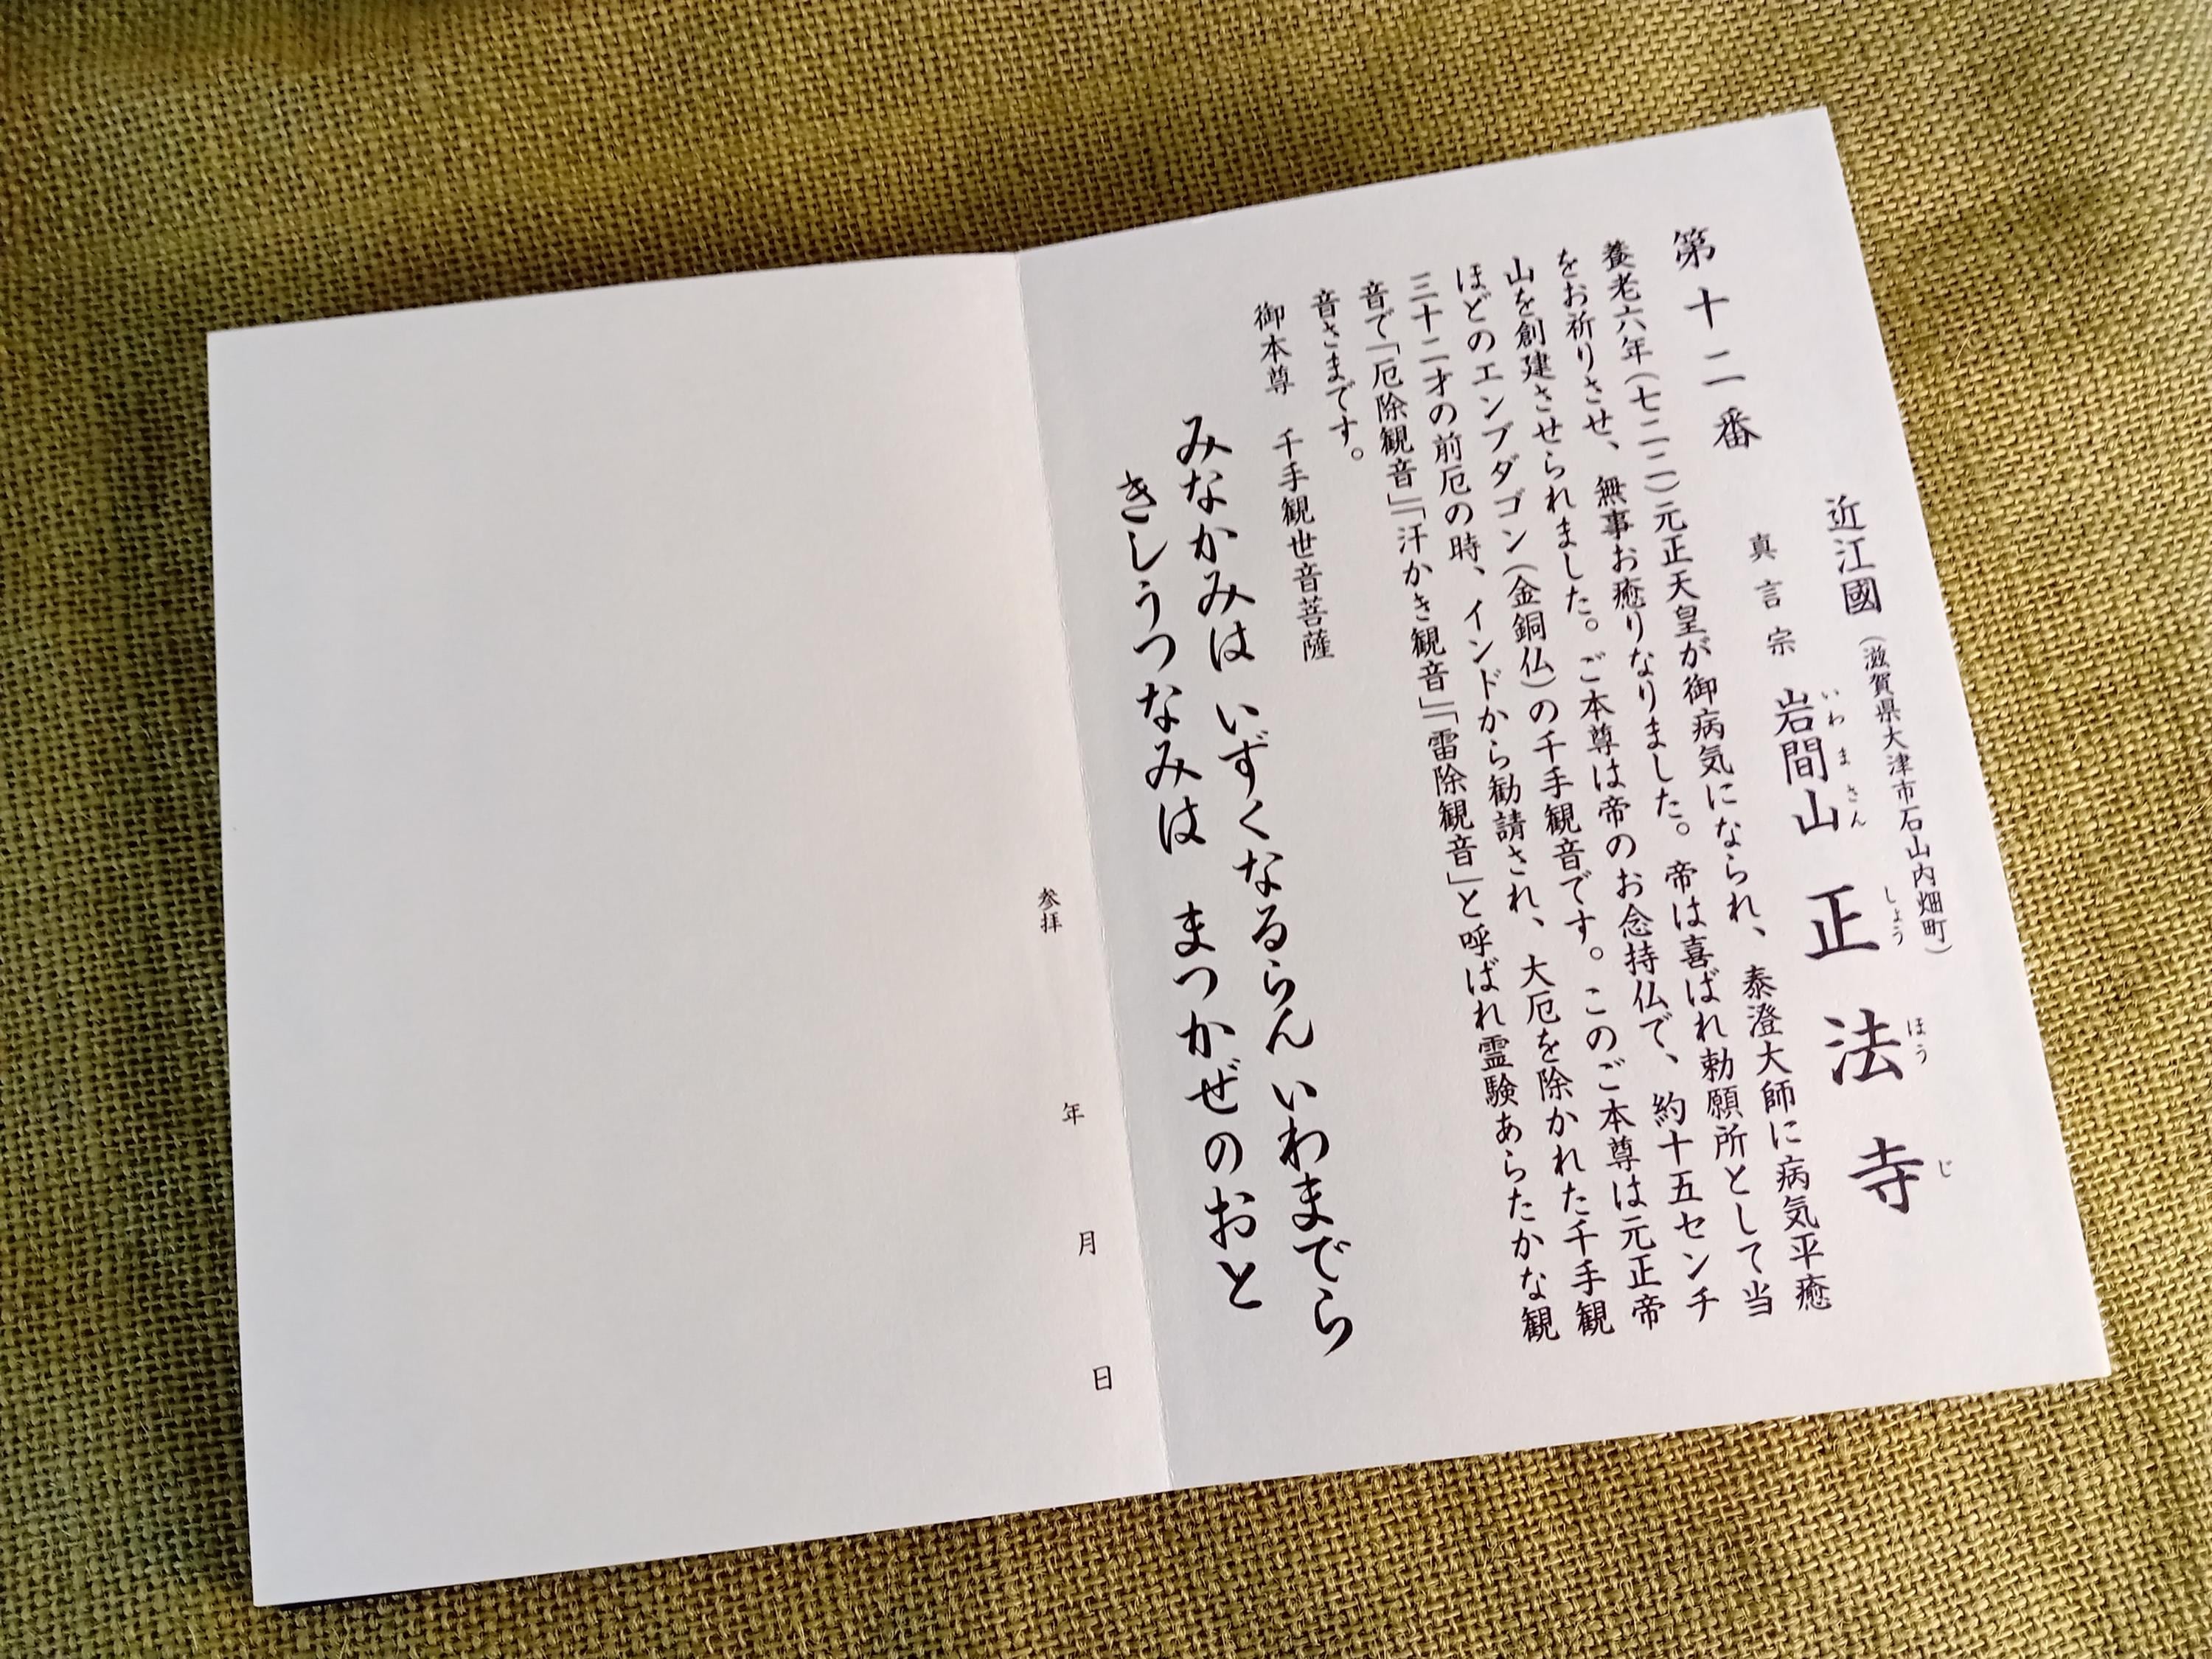 近江國（滋賀県大津市石山内畑町）
第十二番
真言宗 岩間山 正法寺
いわまさん しょうほうじ
養老六年（七二二）元正天皇が御病気になられ、泰澄大師に病気平癒
をお祈りさせ、無事お癒りなりました。帝は喜ばれ勅願所として当
山を創建させられました。ご本尊は帝のお念持仏で、約十五センチ
ほどのエンブダゴン（金銅仏）の千手観音です。このご本尊は元正帝
三十二才の前厄の時、インドから勧請され、大厄を除かれた千手観
音で「厄除観音」「汗かき観音」「雷除観音」と呼ばれ霊験あらたかな観
音さまです。
御本尊 千手観世音菩薩
みなかみは いずくなるらん いわまでら
きしうつなみは まつかぜのおと
参拝 年 月 日